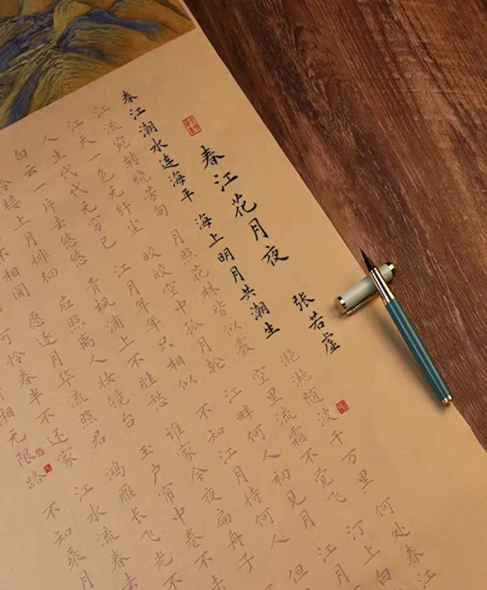 春江花月夜 张若虚
春江潮水连海平 海上明月共潮生 滟滟随波千万里 何处春江
江流宛转绕芳甸 月照花林皆似霰 空里流霜不觉飞 汀上白
江天一色无纤尘 皎皎空中孤月轮 江畔何人初见月 江
人生代代无穷已 江月年年只相似 不知江月待何人 但
白云一片去悠悠 青枫浦上不胜愁 谁家今夜扁舟子
怜楼上月徘徊 应照离人妆镜台 玉户帘中卷不去
不相闻 愿逐月华流照君 鸿雁长飞光不
可怜春半不还家 江水流春去
湘无限路 不知乘月